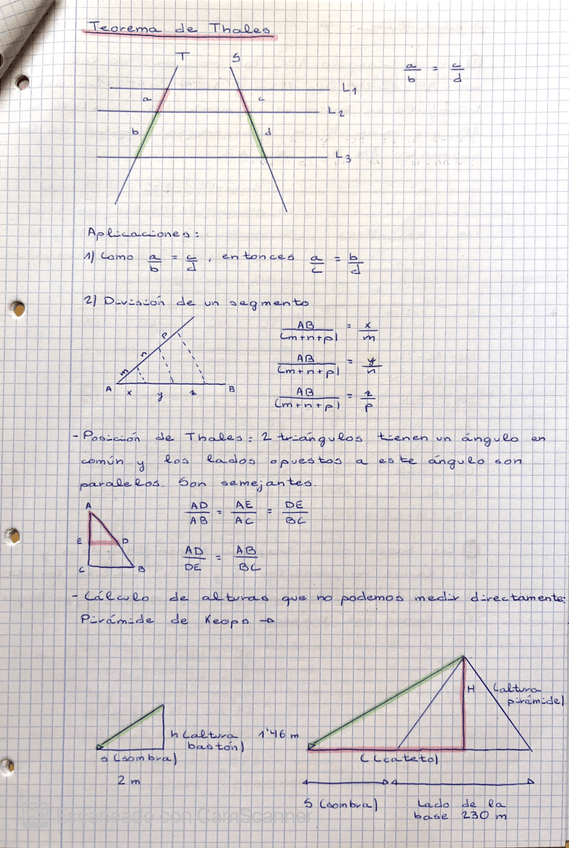 Teorema de Thales
T S
L1
L2
L3
a c
b d
a/b = c/d
Aplicaciones:
1) Como a/b = c/d, entonces a/c = b/d
2) División de un segmento
A m n p B
x y z
AB/(m+n+p) = x/m
AB/(m+n+p) = y/n
AB/(m+n+p) = z/p
- Posición de Thales: 2 triángulos tienen un ángulo en
común y los lados opuestos a este ángulo son
paralelos. Son semejantes.
A
E D
C B
AD/AB = AE/AC = DE/BC
AD/DE = AB/BC
- Cálculo de alturas que no podemos medir directamente:
Pirámide de Keops →
h (altura
bastón) 1'46 m
s (sombra)
2 m
H (altura
pirámide)
C (cateto)
S (sombra) Lado de la
base 230 m